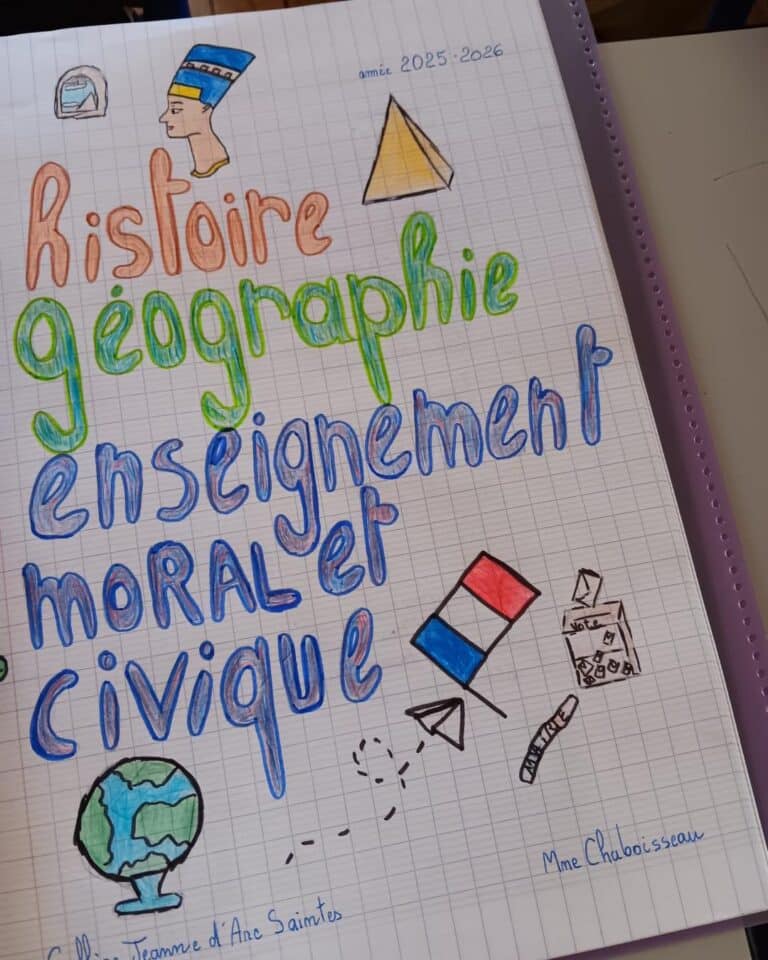 année 2025-2026
histoire
géographie
enseignement
moRAL et
civique
vote
MAIRIE
Mme Chaboisseau
Jeanne d'Arc Saintes